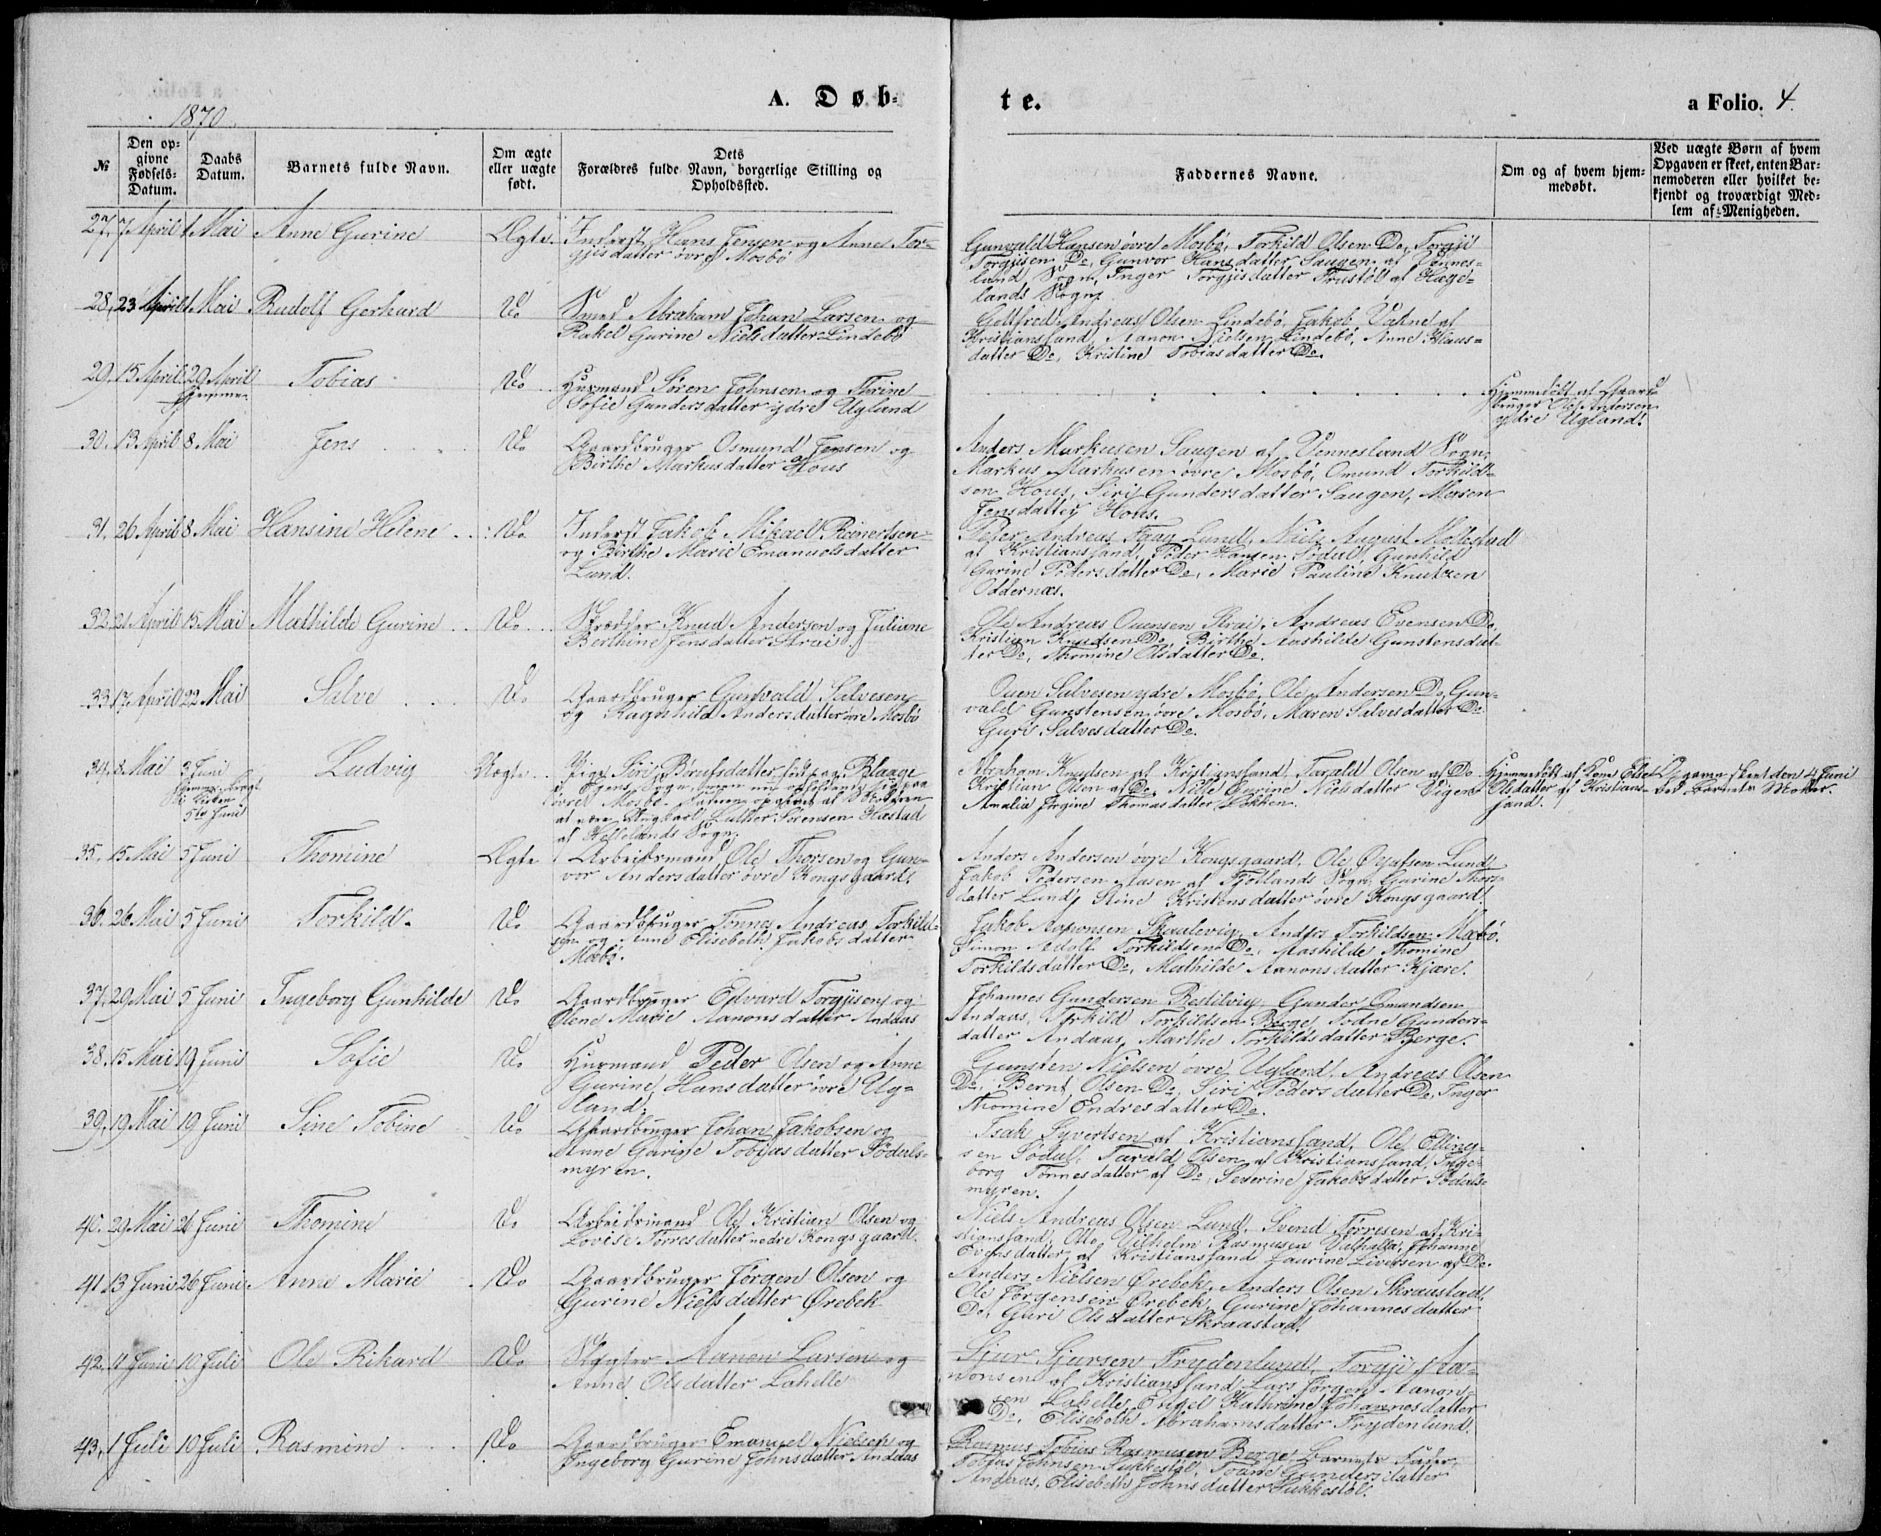 1870.
A. Døb-
te.
a Folio. 4.
№
Den op-
givne
Fødsels-
Datum.
Daabs
Datum.
Barnets fulde Navn.
Om ægte
eller uægte
født.
Dets
Forældres fulde Navn, borgerlige Stilling og
Opholdssted.
Faddernes Navne.
Om og af hvem hjem-
medøbt.
Ved uægte Børn af hvem
Opgaven er skeet, enten Bar-
nemoderen eller hvilket be-
kjendt og troværdigt Med-
lem af Menigheden.
27, 7 April 1 Mai Anne Gurine Ægte. Inderst Hans Jensen og Anne Tor-
gjesdatter øvre Mosbø
Gunvald Hansen øvre Mosbø, Torkild Olsen Do, Torgji
Torgjisen Do, Gunvor Hansdatter Saugen af Vennes-
land Sogn, Inger Torgjisdatter Trustøl af Hæge-
lands Sogn.
28, 23 April 1 Mai Rudolf Gerhard Do Smed Abraham Johan Larsen og
Rakel Gurine Nielsdatter Lindebø
Gottfred Andreas Olsen Lindebø, Jakob Vatne af
Kristianssand, Aanon Nielsen Lindebø, Anne Klaus-
datter Do, Kristine Tobiasdatter Do.
29, 15 April 29 April Tobias Do Husmand Søren Johnsen og Thrine
hjemme.
Sofie Gundersdatter ydre Ugland
Hjemmedøbt af Gaard-
bruger Ole Andersen
ydre Ugland.
30. 13 April 8 Mai Jens Do Gaardbruger Osmund Jensen og
Birthe Markusdatter Hous
Anders Markusen Saugen af Vennesland Sogn,
Markus Markusen øvre Mosbø, Omund Torkild-
sen Hous, Siri Gundersdatter Saugen, Maren
Jensdatter Hous.
31. 26 April 8 Mai Hansine Helene Do Inderst Jakob Mikael Reinertsen
og Birthe Marie Emanuelsdatter
Lund.
Peter Andreas Lund, Niels August Mollestad
af Kristianssand, Peder Hansen Sødal, Gunhild
Gurine Pedersdatter Do, Marie Pauline Knutzen
Oddernæs.
32, 21 April 15 Mai Mathilde Gurine Do Skrædder Knud Andersen og Juliane
Berthine Jensdatter Strai
Ole Andreas Ouensen Strai, Andreas Evensen Do,
Kristian Knudsen Do, Birthe Mathilde Gunstensdat-
ter Do, Thomine Olsdatter Do.
33, 17 April 22 Mai Salve Do Gaardbruger Gunvald Salvesen
og Ragnhild Andersdatter øvre Mosbø
Ouen Salvesen ydre Mosbø, Ole Andersen Do, Gun-
vald Gunstensen øvre Mosbø, Maren Salvesdatter Do
Guri Salvesdatter Do.
34, 8 Mai 3 Juni Ludvig Uægte Pige Siri Børufsdatter født paa Blaage
i Kirken
5te Juni
øvre Mosbø. Faderen opgivet at
at være Ungkarl Luther Sørensen Hæstad
af Hollelands Sogn.
Abraham Knudsen af Kristianssand, Tarald Olsen af Do
Kristian Olsen af Do, Nille Gurine Nielsdatter Vigen
Amalia Jørgine Thomasdatter Løkken.
Hjemmedøbt af Kone Else
Olsdatter af Kristians-
sand.
Opgaven skeet den 4 Juni
ved Barnets Moder.
35. 15 Mai 5 Juni Thomine Ægte Arbeidsmand Ole Thorsen og Gun-
vor Andersdatter øvre Kongsgaard.
Anders Andersen øvre Kongsgaard, Ole Olsen Lund,
Jakob Pedersen Aasen af Fjotlands Sogn, Gurine Thors-
datter Lund, Stine Kristensdatter øvre Kongsgaard.
36. 26 Mai 5 Juni Torkild Do Gaardbruger Tønnes Andreas Torkild-
sen Anne Elisebeth Jakobsdatter
Mæbø.
Jakob Aaronsen Skaalevig, Anders Torkildsen Mæbø,
Simon Adolf Torkildsen Do, Mathilde Thomine
Torkildsdatter Do, Mathilde Aanonsdatter Kjære.
37. 29 Mai 5 Juni Ingeborg Gunhilde Do Gaardbruger Edvard Torgjisen og
Olene Marie Aanonsdatter Andaas
Johannes Gundersen Restilvig, Gunder Omundsen
Andaas, Torkild Torkildsen Berge, Todne Gunders-
datter Andaas, Marthe Torkildsdatter Berge.
38. 15 Mai 19 Juni Sofie Do Husmand Peder Olsen og Anne
Gurine Hansdatter øvre Ug-
land.
Gunsten Nielsen øvre Ugland, Andreas Olsen
Do, Bernt Olsen Do, Siri Pedersdatter Do, Inger
Thomine Endresdatter Do.
39, 19 Mai 19 Juni Sine Tobine Do Gaardbruger Johan Jakobsen og
Anne Gurine Tobiasdatter Sødals-
myren.
Isak Syvertsen af Kristianssand, Ole Elling-
sen Sødal, Tarald Olsen af Kristianssand, Inge-
borg Tønnesdatter af Do, Severine Jakobsdatter Sødals-
myren.
40. 29 Mai 26 Juni Thomine Do Arbeidsmand Ole Kristian Olsen og
Lovise Torresdatter nedre Kongsgaard.
Niels Andreas Olsen Lund, Svend Torresen af Kri-
stianssand, Otto Vilhelm Rasmusen Valhalla, Johanne
Evensdatter af Kristianssand, Laurine Liversen af Do.
41. 13 Juni 26 Juni Anne Marie Do Gaardbruger Jørgen Olsen og
Gurine Nielsdatter Ørebek
Anders Nielsen Ørebek, Anders Olsen Skraastad,
Ole Jørgensen Ørebek, Gurine Johannesdatter
Do, Guri Olsdatter Skraastad.
42. 11 Juni 10 Juli Ole Rikard Do Slagter Aanon Larsen og
Anne Olsdatter Lahelle
Sjur Sjursen Frydenlund, Torgji Aa-
nonsen af Kristianssand, Lars Jørgen Aanon-
sen Lahelle, Engel Kathrine Johannesdatter
Do, Elisebeth Abrahamsdatter Frydenlund.
43, 1 Juli 10 Juli Rasmine Do Gaardbruger Emanuel Nielsen og
Ingeborg Gurine Johnsdatter Andaas
Rasmus Tobias Rasmusen Berge, Barnets Fader,
Tobias Johnsen Sukkestøl, Todne Gundersdatter
Andaas, Elisebeth Johnsdatter Sukkestøl.